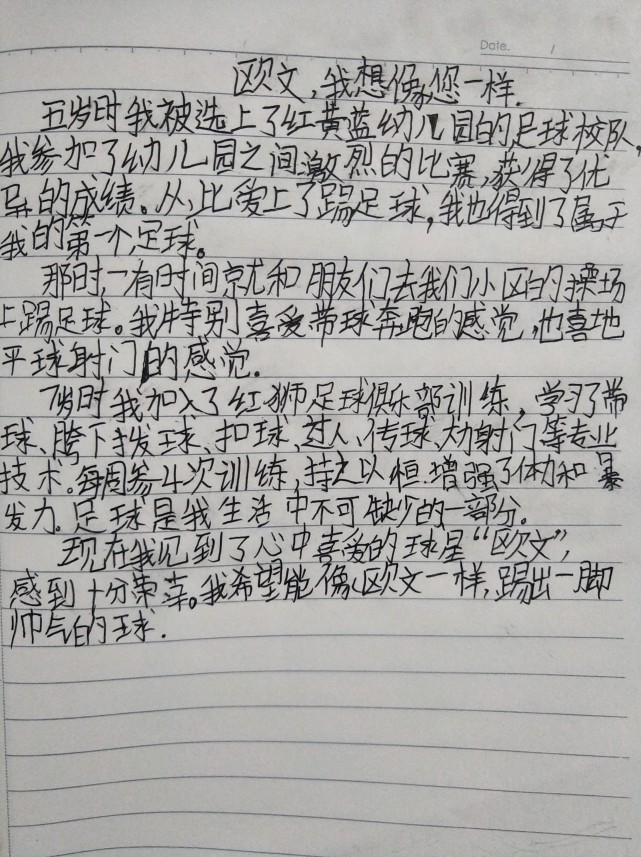 Date.
欧文,我想像您一样.
五岁时我被选上了红黄蓝幼儿园的足球校队,
我参加了幼儿园之间激烈的比赛,获得了优
异的成绩。从比爱上了踢足球,我也得到了属于
我的第一个足球。
那时,一有时间就和朋友们去我们小区的操场
上踢足球。我特别喜爱带球奔跑的感觉,也喜地
平球射门的感觉.
7岁时我加入了红狮足球俱乐部训练,学习了带
球、胯下拨球、扣球、过人、传球、大力射门等专业
技术。每周参4次训练,持之以恒.增强了体力和暴
发力.足球是我生活中不可缺少的一部分。
现在我见到了心中喜爱的球星“欧文”,
感到十分荣幸。我希望能像欧文一样,踢出一脚
帅气的球.